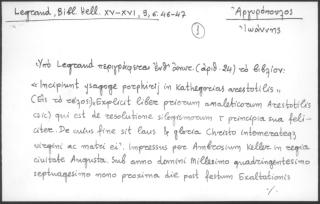 Legrand, Bibl. Hell. XV-XVI, 3, σ. 46-47
Ἀργυρόπουλος
Ἰωάννης
1
Ὑπὸ Legrand περιγράφεται (ἀριθ. 24) τὸ βιβλίον:
«Incipiunt ysagoge porphirij in Kathegorias arestotilis»
(Εἰς τὸ τέλος): «Explicit liber priorum analeticorum Arestotilis
(sic) qui est de resolutione silogismorum τ principia sua feli-
citer. De cuius fine sit laus & gloria Christo intemerateqz
virgini ac matri ei⁹. Impressus per Ambrosium Keller in regia
civitate Augusta. Sub anno domini Millesimo quadringentesimo
septuagesimo nono proxima die post festum Exaltationis
%.